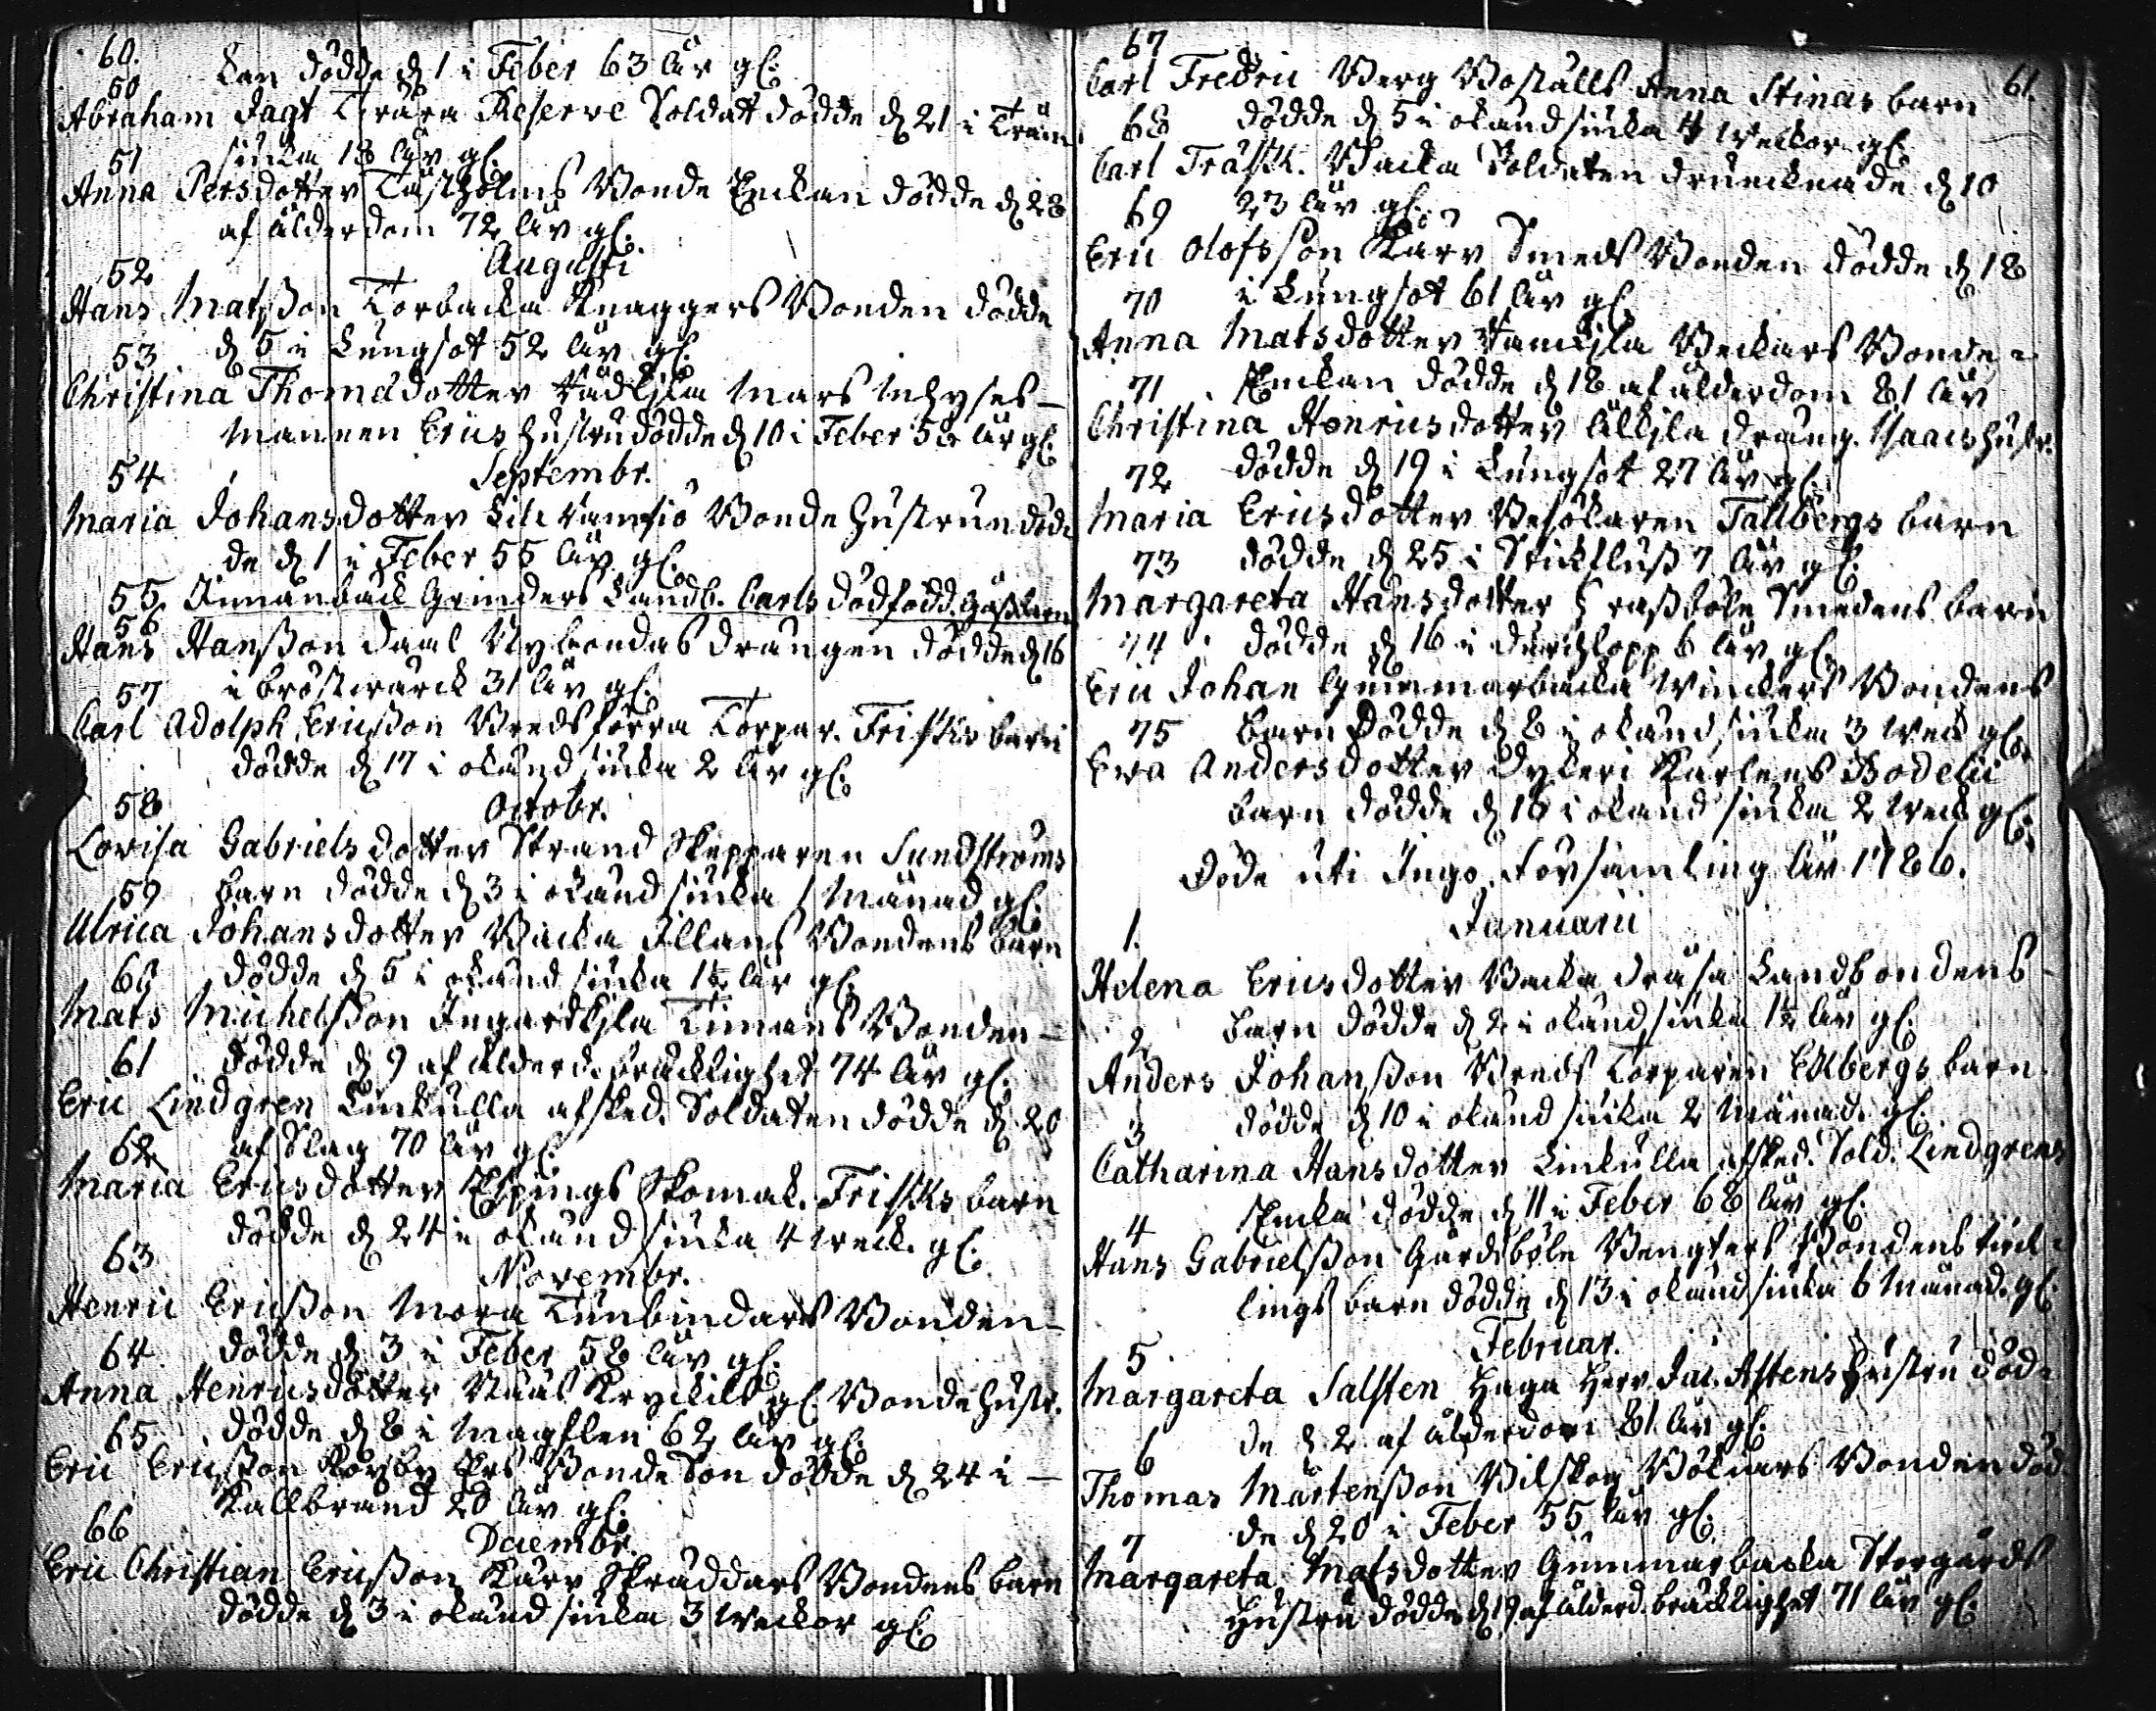 60.
kan dödde d. 1 i Feber 63 åhr gl.
50
Abraham Jagt Reserve Soldat dödde d. 21 i
siuka 18 åhr gl.
51
Anna Persdotter Bonde Enckan dödde d. 28
af ålderdom 72 åhr gl.
Augusti
52
Hans Matsson Torbacka Knaggers Bonden dödde
d. 5 i Lungsot 52 åhr gl.
53
Christina Thomædotter Mars Inhyses-
mannen Erics hustru dödde d. 10 i Feber 52 åhr gl.
54
Septembr.
Maria Johansdotter Lill Bonde hustrun död-
de d. 1 i Feber 55 åhr gl.
55 Grinders Landb. Carls dödfödd.
56
Hans Hansson Daal Nybondas drängen dödde d. 16
i bröstwärck 31 åhr gl.
57
Carl Adolph Ericsson Torpar. Frisks barn
dödde d. 17 i okänd siuka 2 åhr gl.
58
Octobr.
Lovisa Gabrielsdotter Strand Skepparen Sundströms
barn dödde d. 3 i okänd siuka 1 Månad gl.
59
Ulrica Johansdotter Backa Illans Bondens barn
dödde d. 5 i okänd siuka 1½ åhr gl.
60
Mats Michelsson Ingarskila Timans Bonden
dödde d. 9 af ålderd. bräcklighet 74 åhr gl.
61
Eric Lindgren Linkulla afsked. Soldaten dödde d. 20
af Slag 70 åhr gl.
62
Maria Ericsdotter Espings Skomak. Frisks barn
dödde d. 24 i okänd siuka 4 weck. gl.
63
Novembr.
Henric Ericsson Mora Tunbindars Bonden
dödde d. 3 i Feber 58 åhr gl.
64
Anna Henricsdotter gl. Bonde hustr.
dödde d. 8 i Magplen 62 åhr gl.
65
Eric Ericsson Bonde Son dödde d. 24 i
Kallbrand 20 åhr gl.
66
Decembr.
Eric Christian Ericsson Kärr Skräddars Bondens barn
dödde d. 3 i okänd siuka 3 weckor gl.
61.
67
Carl Fredric Berg Boställs Anna Stinas barn
dödde d. 5 i okänd siuka 4 weckor gl.
68
Carl Träsk. Backa Soldaten drunknade d. 10
23 åhr gl.
69
Eric Olofsson Kärr Smeds Bonden dödde d. 18
i Lungsot 61 åhr gl.
70
Anna Matsdotter Beckars Bonde
Enckan dödde d. 18 af ålderdom 81 åhr
71
Christina Henricsdotter dräng. Isaacs hustr.
dödde d. 19 i Lungsot 27 åhr gl.
72
Maria Ericsdotter Besökaren Tallbergs barn
dödde d. 25 i Stickfluss 7 åhr gl.
73
Margareta Hansdotter Smedens barn
dödde d. 16 i Durchlopp 6 åhr gl.
74
Eric Johan Gunnarbacka Winckers Bondens
barn dödde d. 8 i okänd siuka 3 weck gl.
75
Eva Andersdotter Dykeri Karlens Bodelii
barn dödde d. 16 i okänd siuka 2 weck gl.
Döde uti Ingo Församling åhr 1786.
Januarii
1.
Helena Ericsdotter Backa Landbondens
barn dödde d. 2 i okänd siuka 1½ åhr gl.
2
Anders Johansson Torparen Ekbergs barn
dödde d. 10 i okänd siuka 2 Månad. gl.
3
Catharina Hansdotter Linkulla afsked. Sold. Lindgrens
Encka dödde d. 11 i Feber 68 åhr gl.
4
Hans Gabrielsson Gårdsböle Bengters Bondens
lings barn dödde d. 13 i okänd siuka 6 Månad. gl.
Februar.
5
Margareta Salsten Haga Herr Jac. Astens Hustru död-
de d. 2 af ålderdom 81 åhr gl.
6
Thomas Mårtensson Bilskog Bökars Bonden död-
de d. 20 i Feber 55 åhr gl.
7
Margareta Matsdotter Gunnarbacka Storgårds
Hustru dödde d. 19 af ålderd. bräcklighet 71 åhr gl.